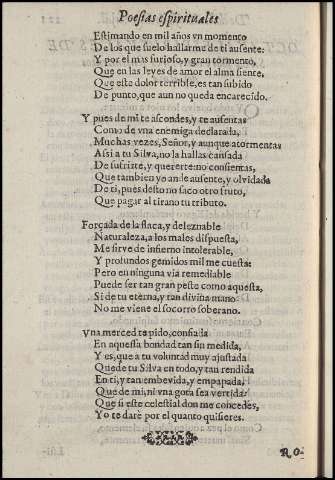 Poesias espirituales
Estimando en mil años vn momento
De los que suelo hallarme de ti ausente:
Y por el mas furioso, y gran tormento,
Que en las leyes de amor el alma siente,
Que este dolor terrible, es tan subido
De punto, que aun no queda encarecido.
Y pues de mi te ascondes, y te ausentas
Como de vna enemiga declarada,
Muchas vezes, Señor, y aunque atormentas
Assi a tu Silva, no la hallas cansada
De sufrirte, y quererte: no consientas,
Que tambien yo ande ausente, y olvidada
De ti, pues desto no saco otro fruto,
Que pagar al tirano tu tributo.
Forçada de la flaca, y deleznable
Naturaleza, a los males dispuesta,
Me sirve de infierno intolerable,
Y profundos gemidos mil me cuesta:
Pero en ninguna via remediable
Puede ser tan gran peste como aquesta,
Si de tu eterna, y tan divina mano
No me viene el socorro soberano.
Vna merced te pido, confiada
En aquessa bondad tan sin medida,
Y es, que a tu voluntad muy ajustada
Quede tu Silva en todo, y tan rendida
En ti, y tan embevida, y empapada,
Que de mi, ni vna gota sea vertida:
Que si este celestial don me concedes,
Yo te daré por el quanto quisieres.
RO-